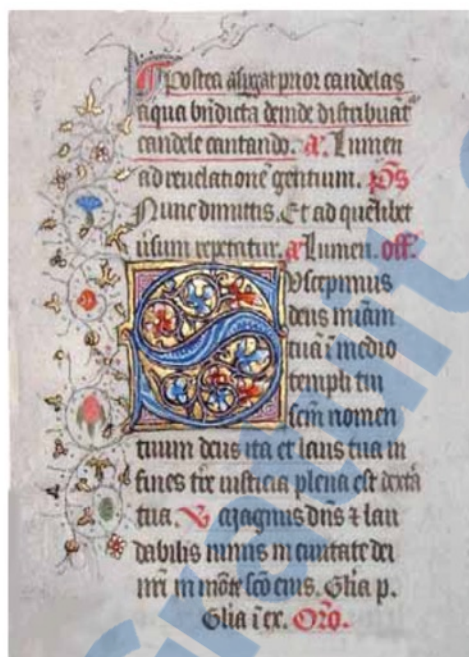 Postea asp̄gat prior candelas
aqua bn̄dicta deinde distribuāt
candele cantando. a. Lumen
ad reuelationē gentium. p̄s
Nunc dimittis. Et ad quēlibet
ūsum repetatur. a Lumen. off.
Suscepimus
deus miām
tuā ī medio
templi tui
scđm nomen
tuum deus ita et laus tua in
fines tr̄e iusticia plena est dextā
tua. V̄ Magnus dn̄s ⁊ lau
dabilis nimis in ciuitate dei
nr̄i in mōte sc̄o eius. Glīa p.
Glīa ī ex. Or̄o.
gratuit